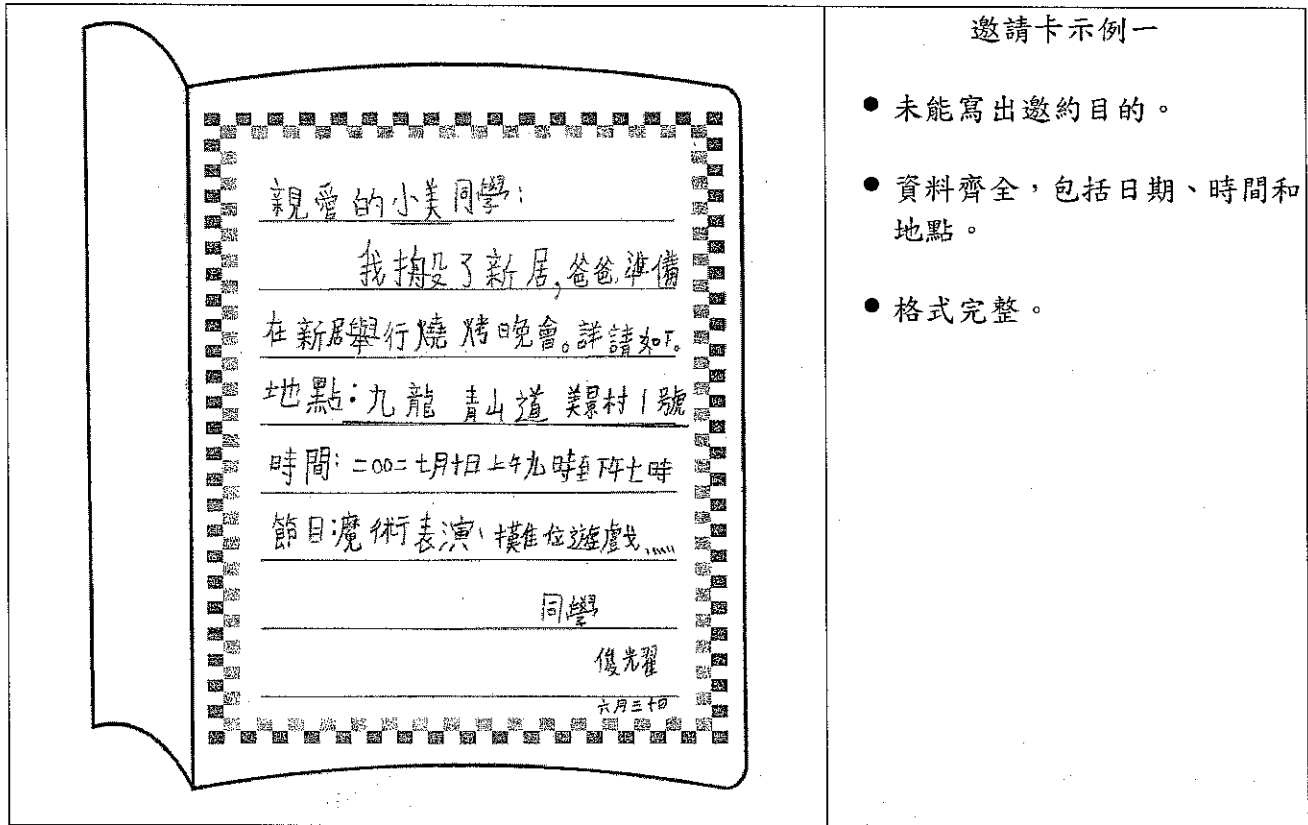 親愛的小美同學：
我搬了新居，爸爸準備
在新居舉行燒烤晚會。詳請如下。
地點：九龍 青山道 美景村1號
時間：二00二七月十日上午九時至下午七時
節目：魔術表演、攤位遊戲……
同學
俊光耀
六月三十日
邀請卡示例一
● 未能寫出邀約目的。
● 資料齊全，包括日期、時間和
地點。
● 格式完整。